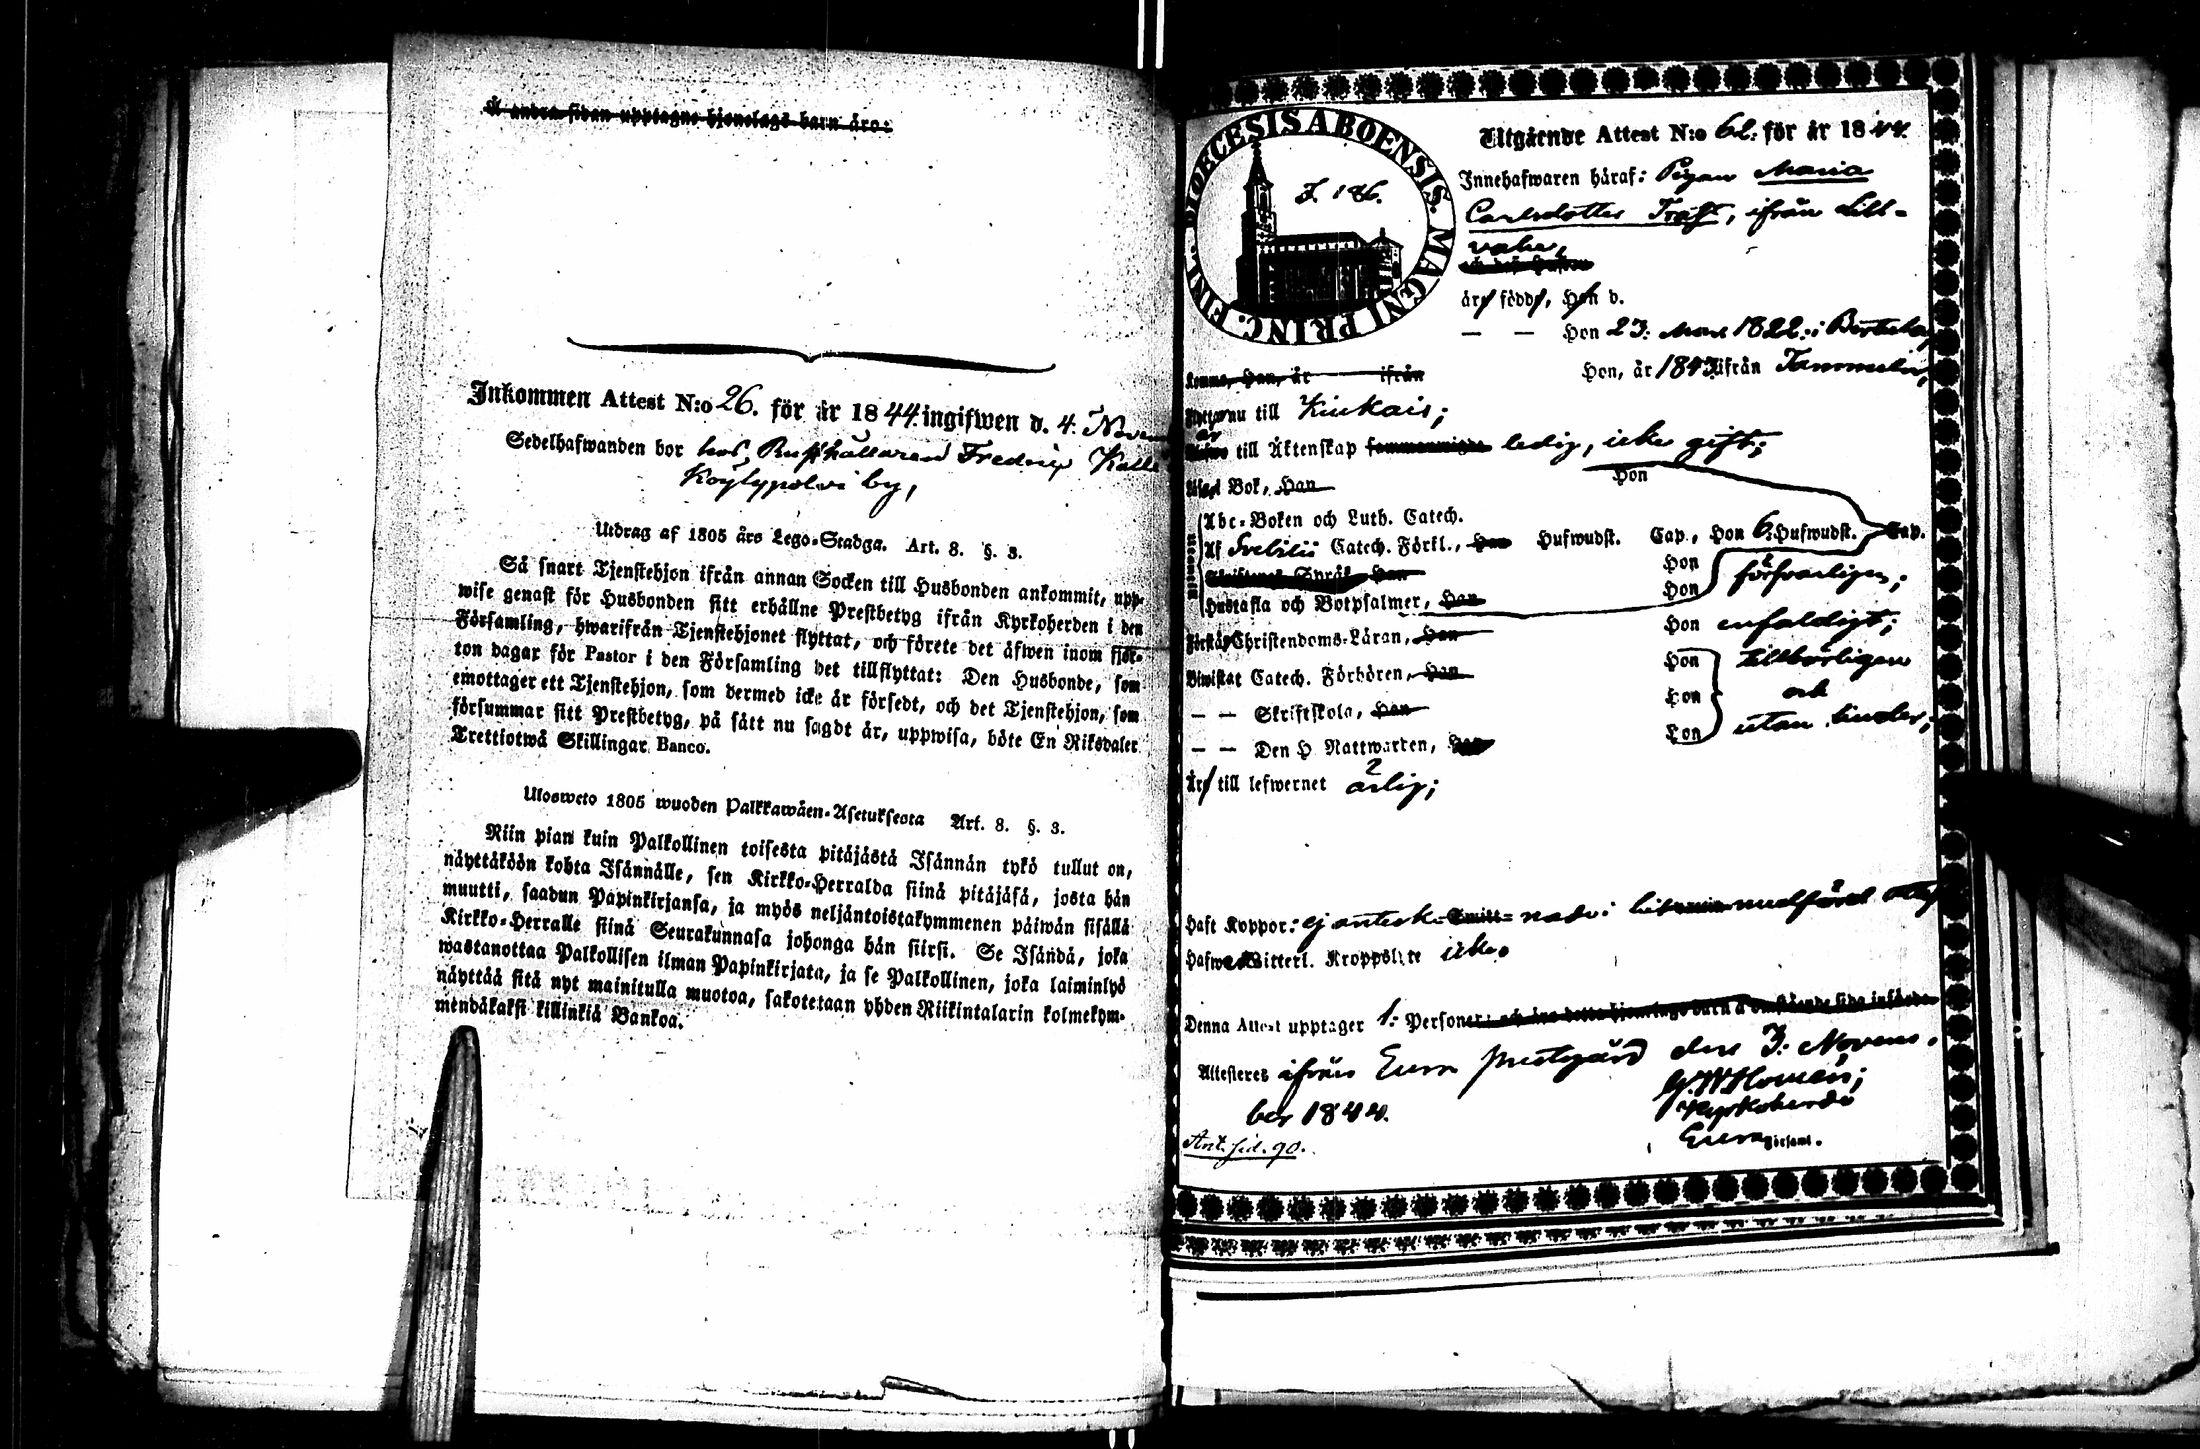 Å andra sidan upptagne hjonelags barn äro:
Inkommen Attest N:o 26. för år 1844. ingifwen d. 4. Novem
Sedelhafwanden bor hos Rusthållaren Fredrig Kalle
Köylypolvi by,
Utdrag af 1805 års Lego-Stadga. Art. 8. §. 3.
Så snart Tjenstehjon ifrån annan Socken till Husbonden ankommit, upp-
wise genast för Husbonden sitt erhållne Prestbetyg ifrån Kyrkoherden i den
Församling, hwarifrån Tjenstehjonet flyttat, och förete det äfwen inom fjor-
ton dagar för Pastor i den Församling det tillflyttat: Den Husbonde, som
emottager ett Tjenstehjon, som dermed icke är försedt, och det Tjenstehjon, som
försummar sitt Prestbetyg, på sätt nu sagdt är, uppwisa, böte En Riksdaler
Trettiotwå Skillingar Banco.
Ulosweto 1805 wuoden Palkkawäen-Asetuksesta Art. 8. §. 3.
Niin pian kuin Palkollinen toisesta pitäjästä Isännän tykö tullut on,
näyttäköön kohta Isännälle, sen Kirkko-Herralda siinä pitäjäsä, josta hän
muutti, saadun Papinkirjansa, ja myös neljäntoistakymmenen päiwän sisällä
Kirkko-Herralle siinä Seurakunnasa johonga hän siirsi. Se Isändä, joka
wastanottaa Palkollisen ilman Papinkirjata, ja se Palkollinen, joka laiminlyö
näyttää sitä nyt mainitulla muotoa, sakotetaan yhden Riikintalarin kolmekym-
mendäkaksi killinkiä Bankoa.
DIOECESIS ABOENSIS. MAGNI PRINC. FINL.
F. 186.
Utgående Attest N:o 62. för år 1844.
Innehafwaren häraf: Pigan Maria
Carlsdotter Träff, ifrån Lill-
är född, Hon d.
— — Hon 23: Mars 1822. i
Komma, Han, år ifrån Hon, år 1843 ifrån
Flyttar nu till Kiukais;
är till Äktenskap ledig, icke gift;
Bok, Han Hon
Abc-Boken och Luth. Catech.
Af Svebilii Catech. Förkl., Han Hufwudst. Cap., Hon 6. Hufwudst. Cap.
Skriftenes Språk Han Hon försvarligen;
Hustafla och Botpsalmer, Han Hon
Förstår Christendoms-Läran, Han Hon enfaldigt;
Biwistat Catech. Förhören, Han Hon tillbörligen
— — Skriftskola, Han Hon och
— — Den H. Nattwarden, Hon utan hinder;
Är till lefwernet ärlig;
Haft Koppor: ej anteck-nade i hit medförd
Hafwer Witterl. Kroppslyte icke.
Denna Attest upptager 1. Personer
Attesteres ifrån Eura prestgård den 3: Novem-
ber 1844.
Kyrkoherde
Eura Församl.
Ant. sid. 90.